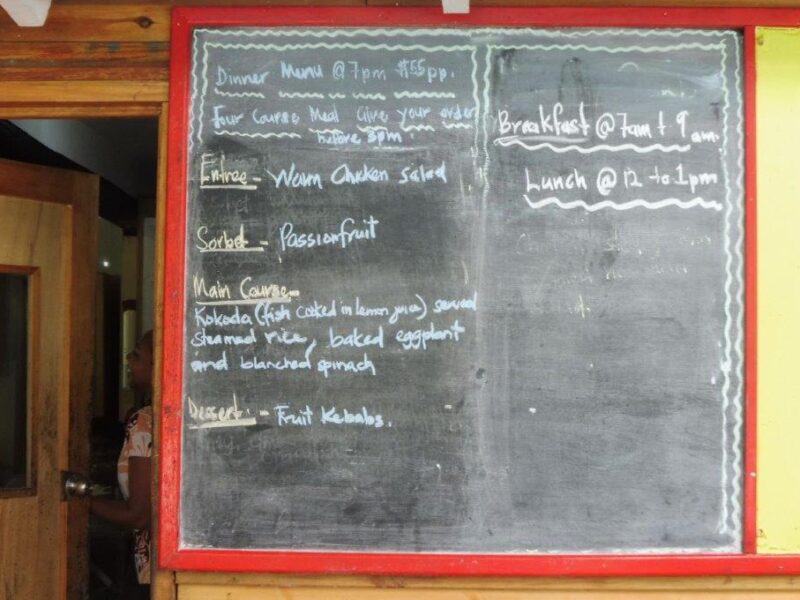 Dinner Menu @ 7pm $55pp.
Four Course Meal Give your order
before 3pm.
Entree - Warm Chicken Salad
Sorbet - Passionfruit
Main Course -
Kokoda (fish cooked in lemon juice) served
steamed rice, baked eggplant
and blanched spinach
Dessert - Fruit Kebabs.
Breakfast @ 7am t 9 am.
Lunch @ 12 to 1pm